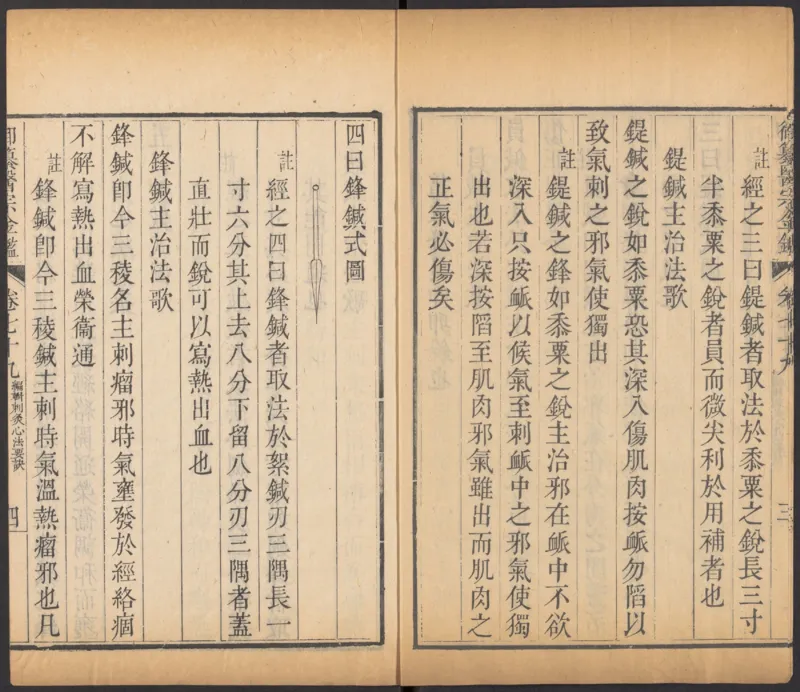 御纂醫宗金鑑 卷七十九 三
註 經之三曰鍉鍼者取法於黍粟之銳長三寸
半黍粟之銳者員而微尖利於用補者也
鍉鍼主治法歌
鍉鍼之銳如黍粟恐其深入傷肌肉按䘑勿陷以
致氣刺之邪氣使獨出
註 鍉鍼之鋒如黍粟之銳主治邪在䘑中不欲
深入只按䘑以候氣至刺䘑中之邪氣使獨
出也若深按陷至肌肉邪氣雖出而肌肉之
正氣必傷矣
四曰鋒鍼式圖
註 經之四曰鋒鍼者取法於絮鍼刃三隅長一
寸六分其上去八分下留八分刃三隅者蓋
直壯而銳可以寫熱出血也
鋒鍼主治法歌
鋒鍼卽今三稜名主刺瘤邪時氣壅發於經絡痼
不解寫熱出血榮衞通
註 鋒鍼卽今三稜鍼主刺時氣溫熱瘤邪也凡
御纂醫宗金鑑 卷七十九 編輯刺灸心法要訣 四